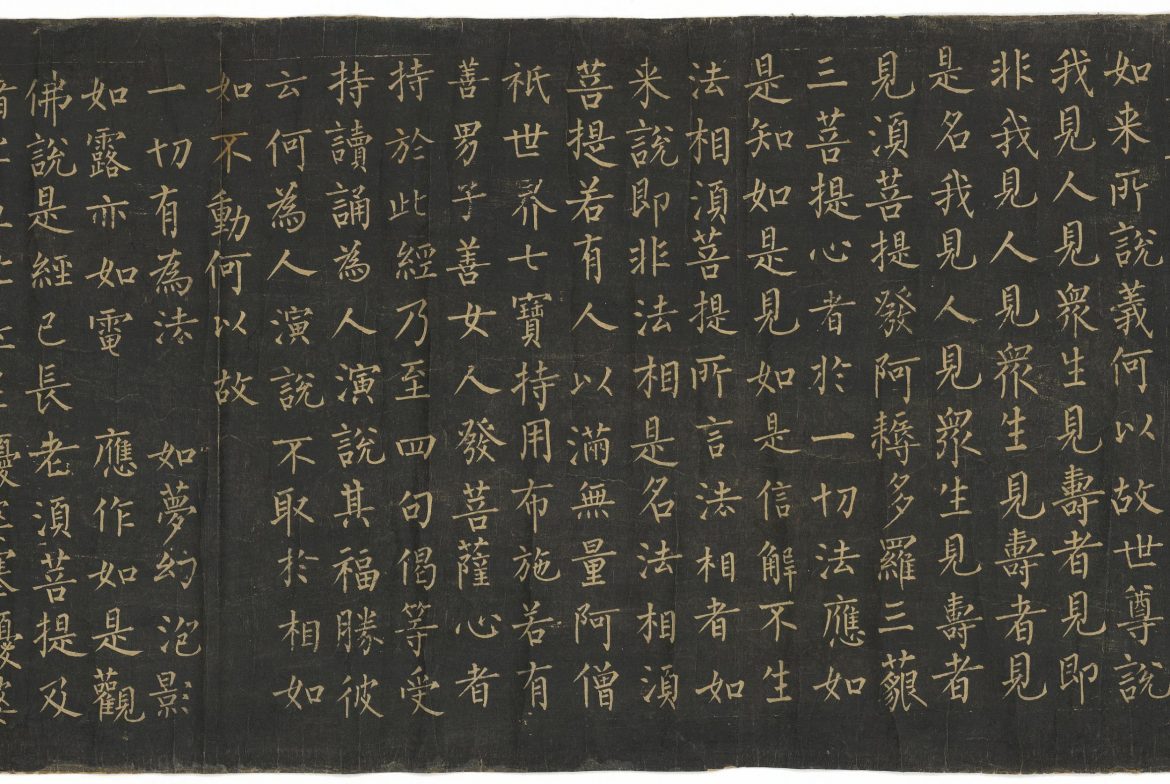 如来所說義何以故世尊說
我見人見眾生見壽者見即
非我見人見眾生見壽者見
是名我見人見眾生見壽者
見湏菩提發阿耨多羅三藐
三菩提心者於一切法應如
是知如是見如是信解不生
法相湏菩提所言法相者如
来說即非法相是名法相湏
菩提若有人以滿無量阿僧
祇世界七寶持用布施若有
善男子善女人發菩薩心者
持於此經乃至四句偈等受
持讀誦為人演說其福勝彼
云何為人演說不取於相如
如不動何以故
一切有為法 如夢幻泡影
如露亦如電 應作如是觀
佛說是經已長老湏菩提及
優婆塞優婆